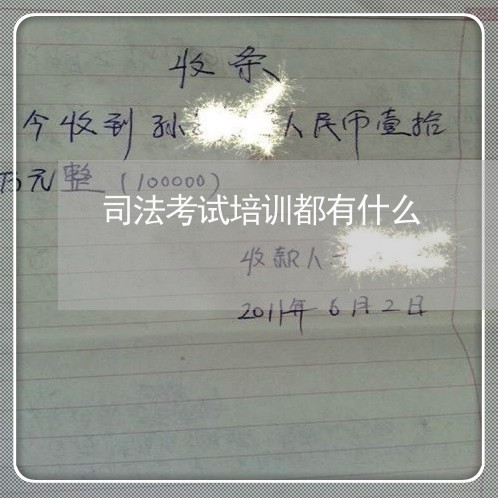 收条
今收到孙 人民币壹拾
万元整(100000)
司法考试培训都有什么
收款人
2011年6月2日